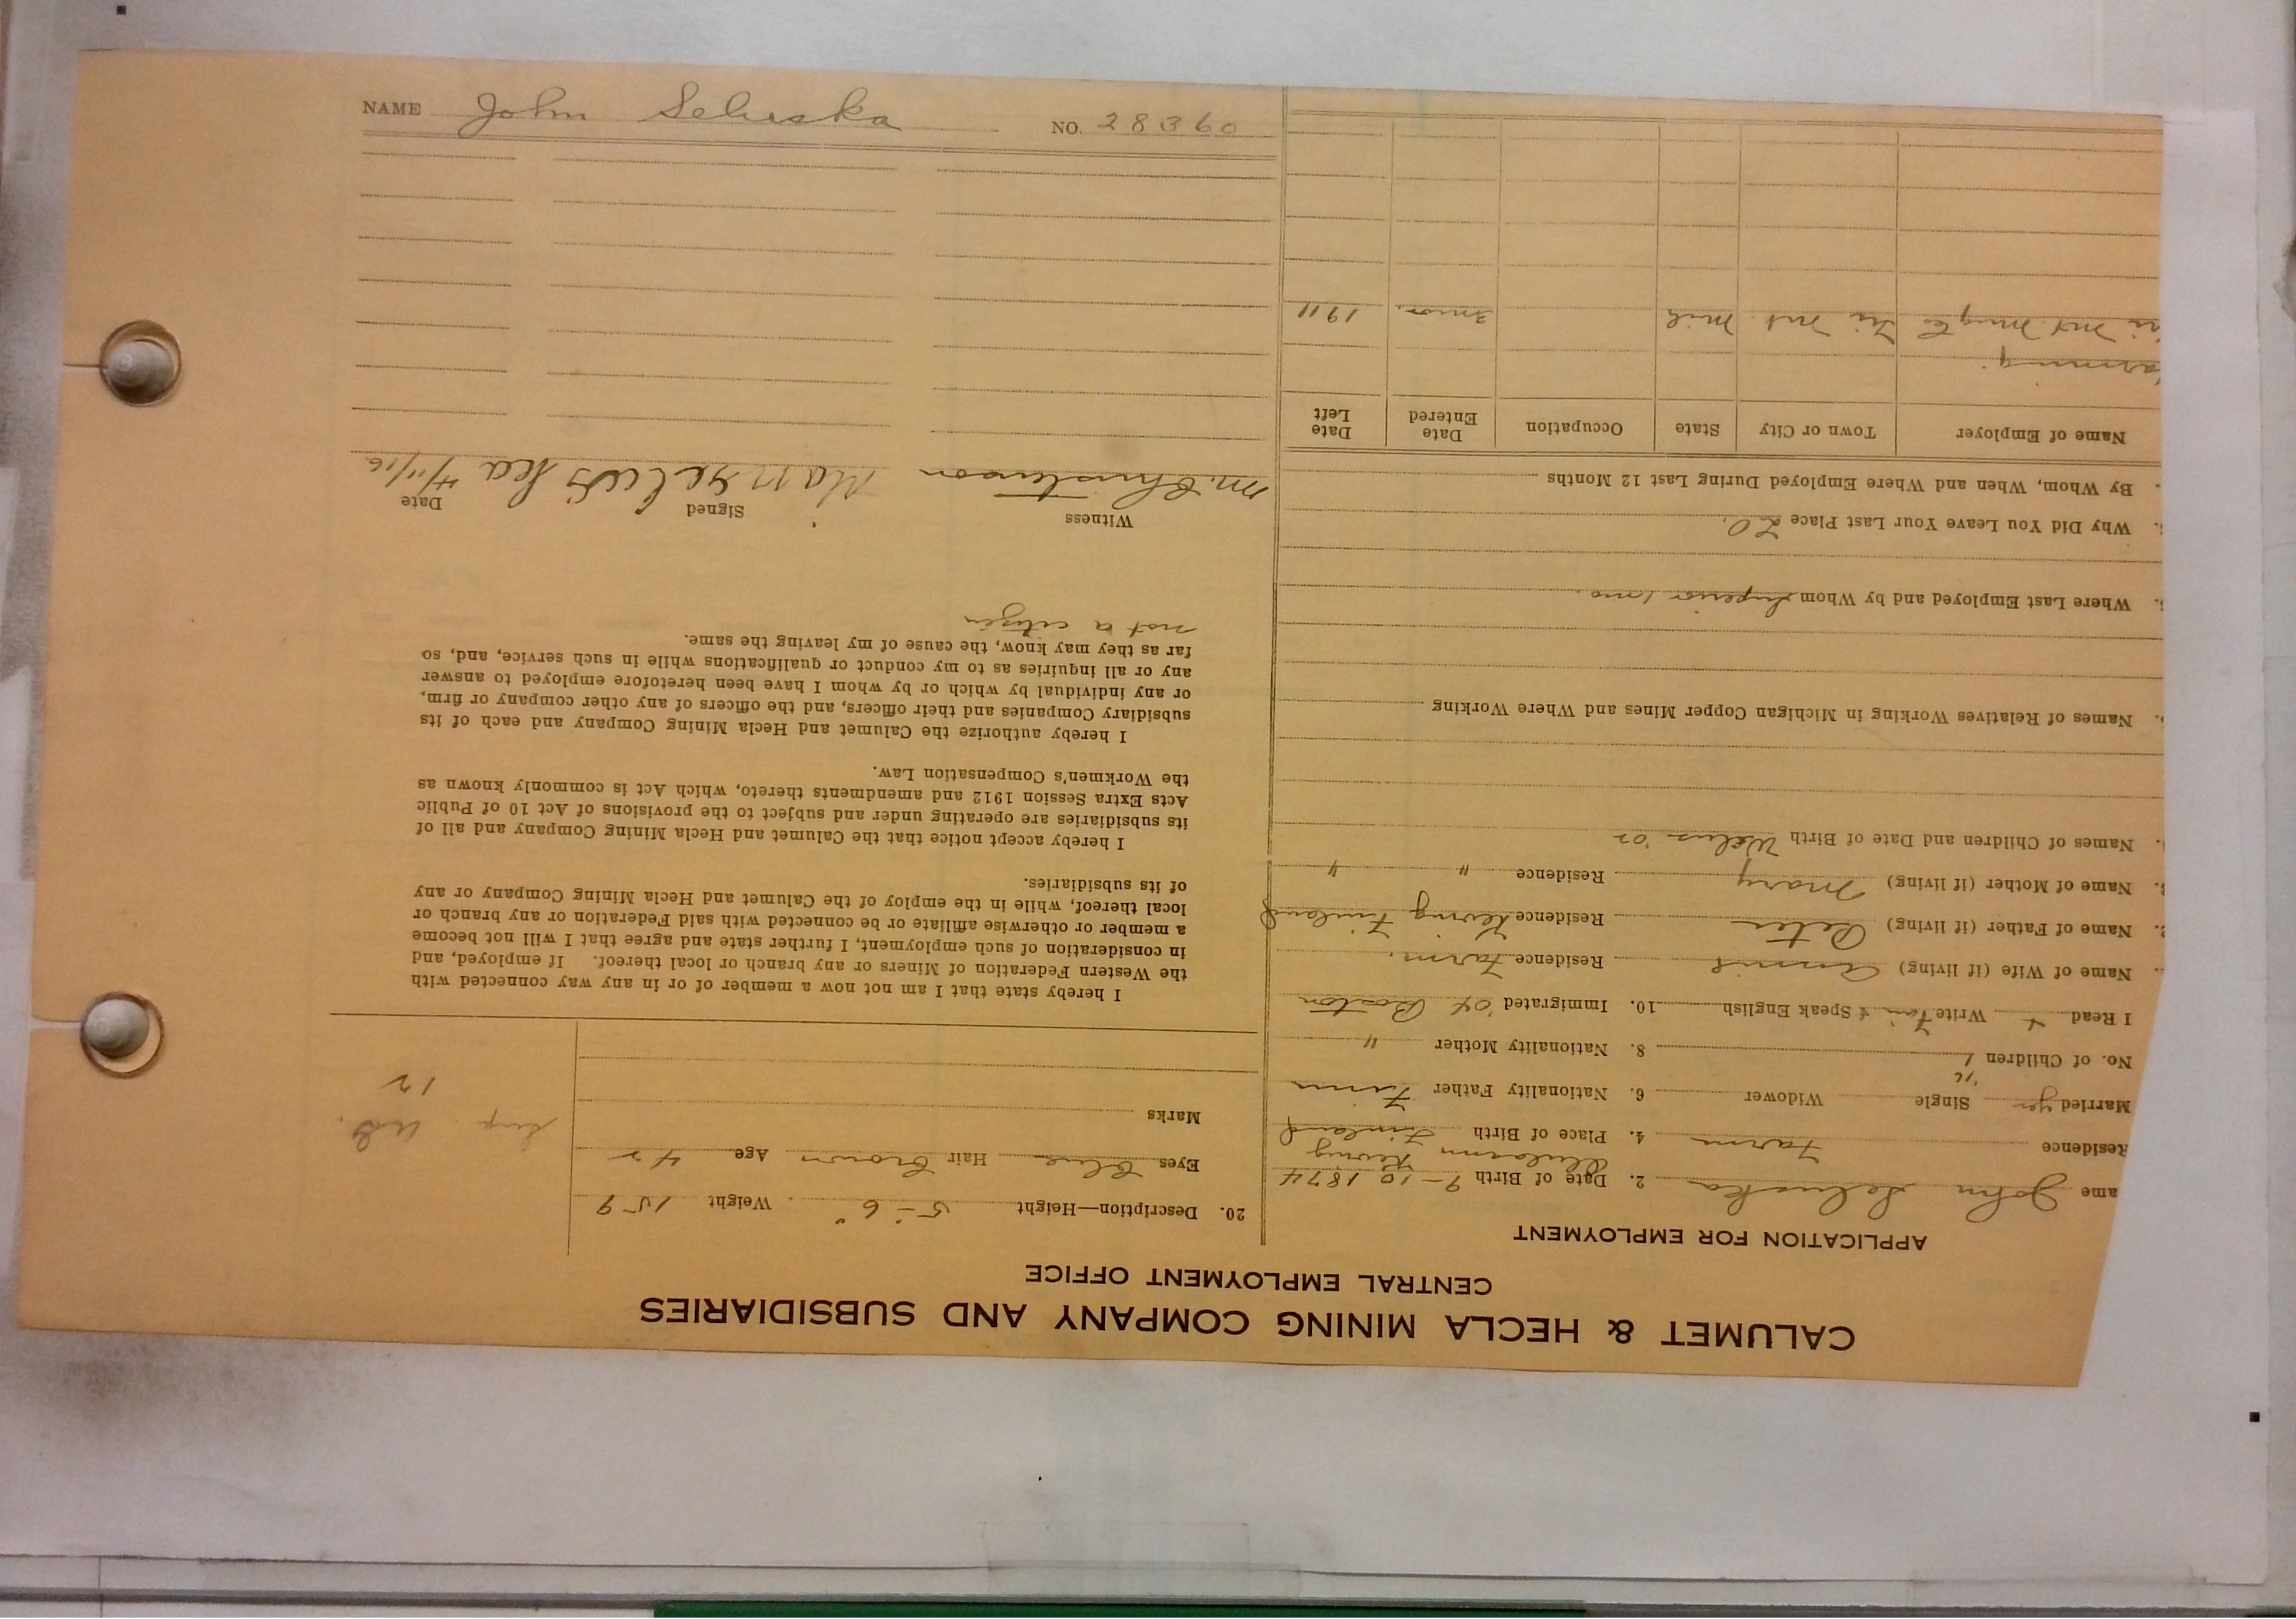 NAME John Seluska NO. 28360
CALUMET & HECLA MINING COMPANY AND SUBSIDIARIES
CENTRAL EMPLOYMENT OFFICE
APPLICATION FOR EMPLOYMENT
ame John Seluska 2. Date of Birth 9-10 1874
Residence Farm 4. Place of Birth Finland
Married yes Single Widower 6. Nationality Father Finn
No. of Children 1 8. Nationality Mother "
I Read Write Speak English 10. Immigrated '04 Boston
Name of Wife (if living) Residence Farm.
Name of Father (if living) Peter Residence Finland
Name of Mother (if living) Mary Residence " "
Names of Children and Date of Birth
Names of Relatives Working in Michigan Copper Mines and Where Working
Where Last Employed and by Whom Superior 1 mo.
Why Did You Leave Your Last Place LO.
By Whom, When and Where Employed During Last 12 Months
Name of Employer Town or City State Occupation Date Entered Date Left
arming
Tri Mt. Mich 3 mos. 1911
20. Description—Height 5-6" Weight 159
Eyes Blue Hair Brown Age 42
Marks
12
I hereby state that I am not now a member of or in any way connected with
the Western Federation of Miners or any branch or local thereof. If employed, and
in consideration of such employment, I further state and agree that I will not become
a member or otherwise affiliate or be connected with said Federation or any branch or
local thereof, while in the employ of the Calumet and Hecla Mining Company or any
of its subsidiaries.
I hereby accept notice that the Calumet and Hecla Mining Company and all of
its subsidiaries are operating under and subject to the provisions of Act 10 of Public
Acts Extra Session 1912 and amendments thereto, which Act is commonly known as
the Workmen's Compensation Law.
I hereby authorize the Calumet and Hecla Mining Company and each of its
subsidiary Companies and their officers, and the officers of any other company or firm,
or any individual by which or by whom I have been heretofore employed to answer
any or all inquiries as to my conduct or qualifications while in such service, and, so
far as they may know, the cause of my leaving the same.
not a citizen
Witness Signed Date
4/11/16